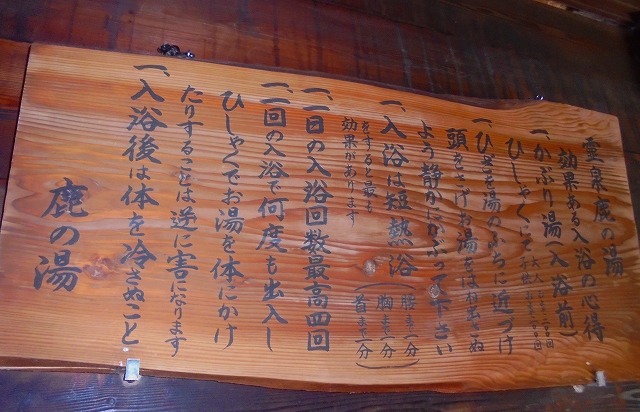 霊泉鹿の湯
効果ある入浴の心得
一、かぶり湯(入浴前)
ひしゃくにて
一、ひざを湯のふちに近づけ
頭をさげお湯をはねさせぬ
よう静かにかぶって下さい
一、入浴は短熱浴
(腰まで一分)
(胸まで一分)
(首まで一分)
をすると最も
効果があります
一、一日の入浴回数最高四回
一、一回の入浴で何度も出入し
ひしゃくでお湯を体にかけ
たりすることは逆に害になります
一、入浴後は体を冷さぬこと
鹿の湯